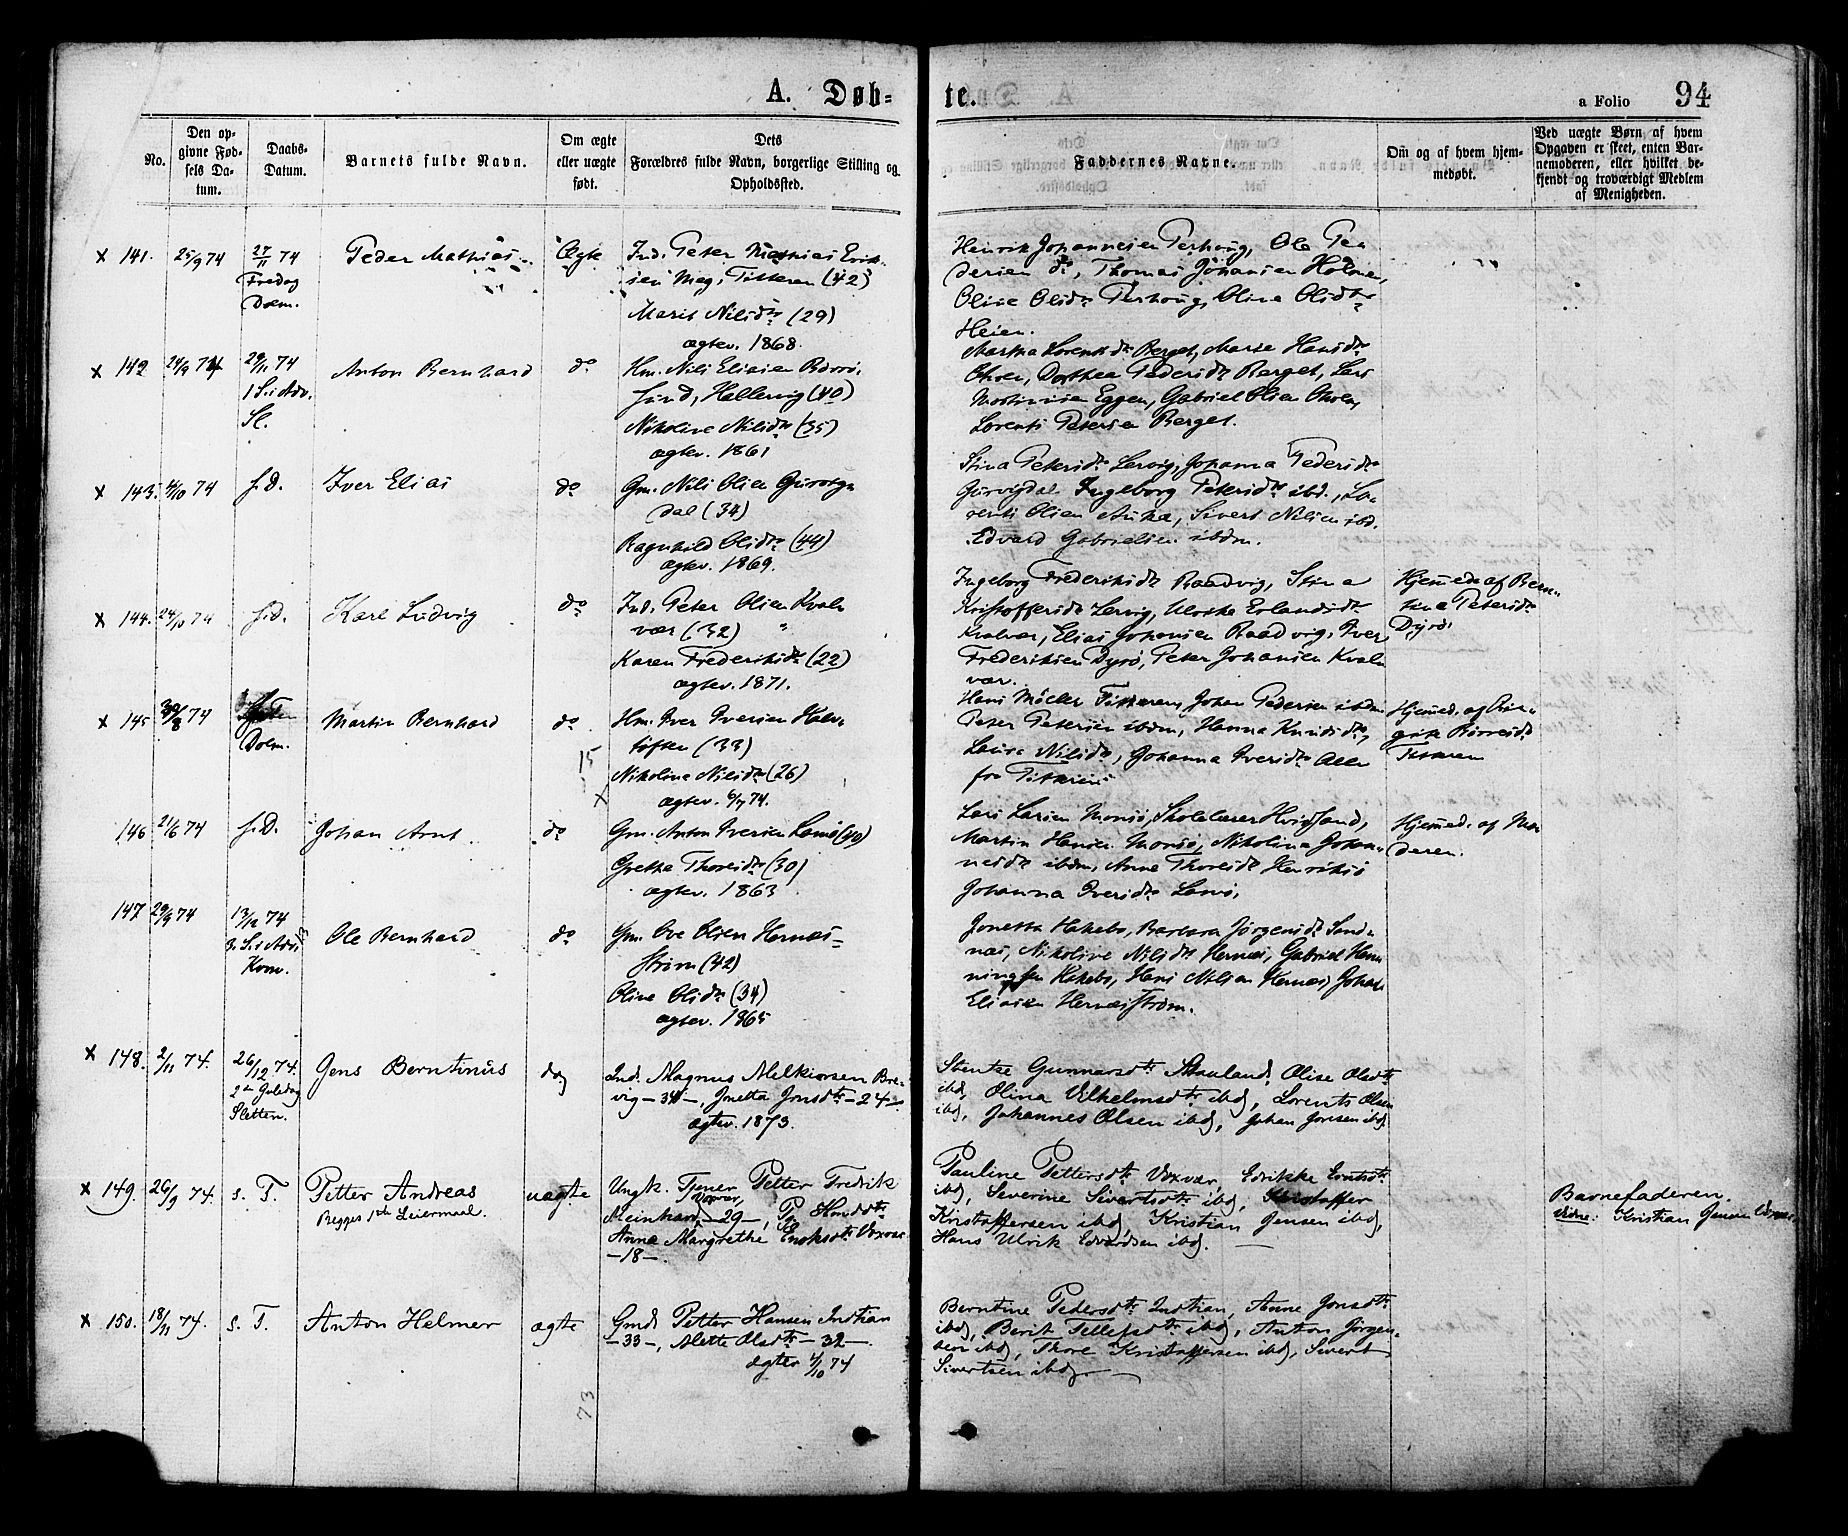 A. Døb=
te.
a Folio 94
No.
Den op-
givne Fød-
sels Da-
tum.
Daabs-
Datum.
Barnets fulde Navn.
Om ægte
eller uægte
født.
Dets
Forældres fulde Navn, borgerlige Stilling og
Opholdssted.
Faddernes Navne.
Om og af hvem hjem-
medøbt.
Ved uægte Børn af hvem
Opgaven er skeet, enten Bar-
nemoderen, eller hvilket be-
kjendt og troværdigt Medlem
af Menigheden.
x 141. 25/9 74
27/11 74
Fredag
Dolm.
Peder Mathias
Ægte
Ind. Peter Mathias Erik-
sen Mag, Titteren (42)
Marit Nilsdtr (29)
ægtev. 1868.
Henrik Johannesen Terhoug, Ole Pe-
dersen do, Thomas Johansen Holmen,
Olive Olsdtr Terhoug, Olina Olsdtr
Heien.
x 142 24/9 74
29/11 74
1 S. i Adv.
Sl.
Anton Bernhard
do
Hm. Nils Eliasen
sund, Hellervig (40)
Nikoline Nilsdtr (35)
ægtev. 1861
Martha Lorentsdtr Berget, Marie Hansdtr
Dorthea Pedersdtr Berget, Lars
Eggen, Gabriel Olsen
Lorents Petersen Berget.
x 143. 4/10 74
s.D.
Iver Elias
do
Gm. Nils Olsen Gurvig-
dal (34)
Ragnhild Olsdtr (44)
ægtev. 1869.
Stina Petersdtr Lervig, Johanna Pedersdtr
Gurvigdal Ingeborg Petersdtr ibd., Lo-
rents Olsen Sivert Nilsen ibd.
Edvard Gabrielsen ibdm.
x 144. 24/10 74
s.D.
Karl Ludvig
do
Ind. Peter Olsen Kval-
vær (32)
Karen Frederiksdtr (22)
ægtev. 1871.
Ingeborg Frederiksdtr Raadvig, Stina
Kristoffersdtr Lervig, Erlandsdtr
Kvalvær, Elias Johansen Raadvig, Iver
Frederiksen Dyrø, Peter Johansen Kval-
vær.
Hjemmed. af Bern-
tina Petersdtr
Dyrø.
x 145 30/8 74
Dolm.
Martin Bernhard
do
15
x
Hm. Iver Iversen
(33)
Nikolina Nilsdtr (26)
ægtev. 6/7 74.
Hans Möller Titteren, Johan Pedersen ibdm
Peter Petersen ibdm, Hanna Knudsdtr,
Laura Nilsdtr, Johanna Iversdtr Alle
fra Titteren
Hjemmed. af
Titteren
146 21/6 74
s.D.
Johan Arnt
do
Gm. Anton Iversen Lamø (40)
Gretha Thoresdtr (30)
ægtev. 1863
Lars Larsen Monsø, Skolelærer Hvidsand,
Martin Hansen Monsø, Nikolina Johan-
nesdtr ibdm, Anne Thoresdtr Henriksø
Johanna Iversdtr Lamø,
Hjemmed. af Mo-
deren.
147 29/9 74
13/12 74
3. S. i Adv.
Korn.
Ole Bernhard
do
Gm. Ove Olsen Hernæs-
strøm (42)
Oline Olsdtr (34)
ægtev. 1865
Jonetta Hakebo, Barbara Jørgensdtr Sand-
næs, Nikoline Nilsdtr Hernæs, Gabriel Hen-
ningsen Hakebo, Hans Nilsen Hernæs, Johan
Eliasen Hernæsstrøm.
x 148. 2/11 74.
26/12 74.
2den Juledag
Sletten.
Jens Berntinus
do
Ind. Magnus Melkiorsen Bre-
vig – 34 –, Jonetta Jonsdtr – 24 –
ægtev. 1873.
Gunnarsdtr Skauland, Olise Olsdtr
ibd, Olina Vilhelmsdtr ibd, Lorents Olsen
ibd, Johannes Olsen ibd, Johan Jonsen ibd.
x 149. 26/9 74.
s. T.
Petter Andreas
Begges 1ste Leiermaal.
uægte
Ungk. Tjener Petter Fredrik
Meinhard, Voxvær, – 29 –, Pg.
Anne Margrethe Enoksdtr Voxvær
– 18 –
Pauline Pettersdtr Voxvær, Edrikke
ibd, Severine Sivertsdtr ibd, Kristoffer
Kristoffersen ibd, Kristian Jensen ibd,
Hans Ulrik Edvardsen ibd. –
Barnefaderen.
Vidne: Kristian Jensen Voxvær.
x 150. 18/11 74.
s. T.
Anton Helmer
ægte
Gmd. Petter Hansen Indtian
– 33 –, Mette Olsdtr – 32 –
ægtev 4/10 74
73
Berntine Pedersdtr Indtian, Anne Jonsdtr
ibd, Berit Tellefsdtr ibd, Anton Jørgen-
sen ibd, Thore Kristoffersen ibd, Sivert
Sivertsen ibd. –